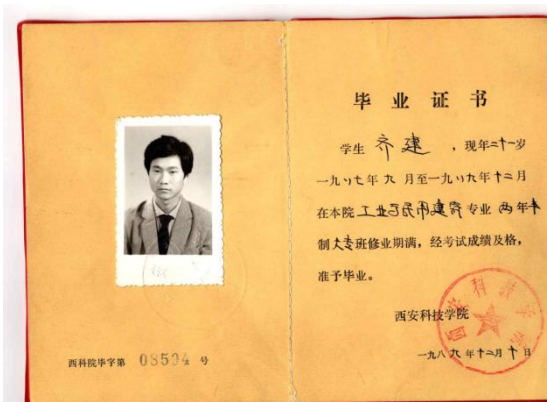 毕业证书
学生 齐建 ，现年二十一岁
一九八七年九月至一九八九年十二月
在本院工业与民用建筑专业 两年半
制大专班修业期满，经考试成绩及格，
准予毕业。
西安科技学院
一九八九年十二月十日
西科院毕字第 08504 号